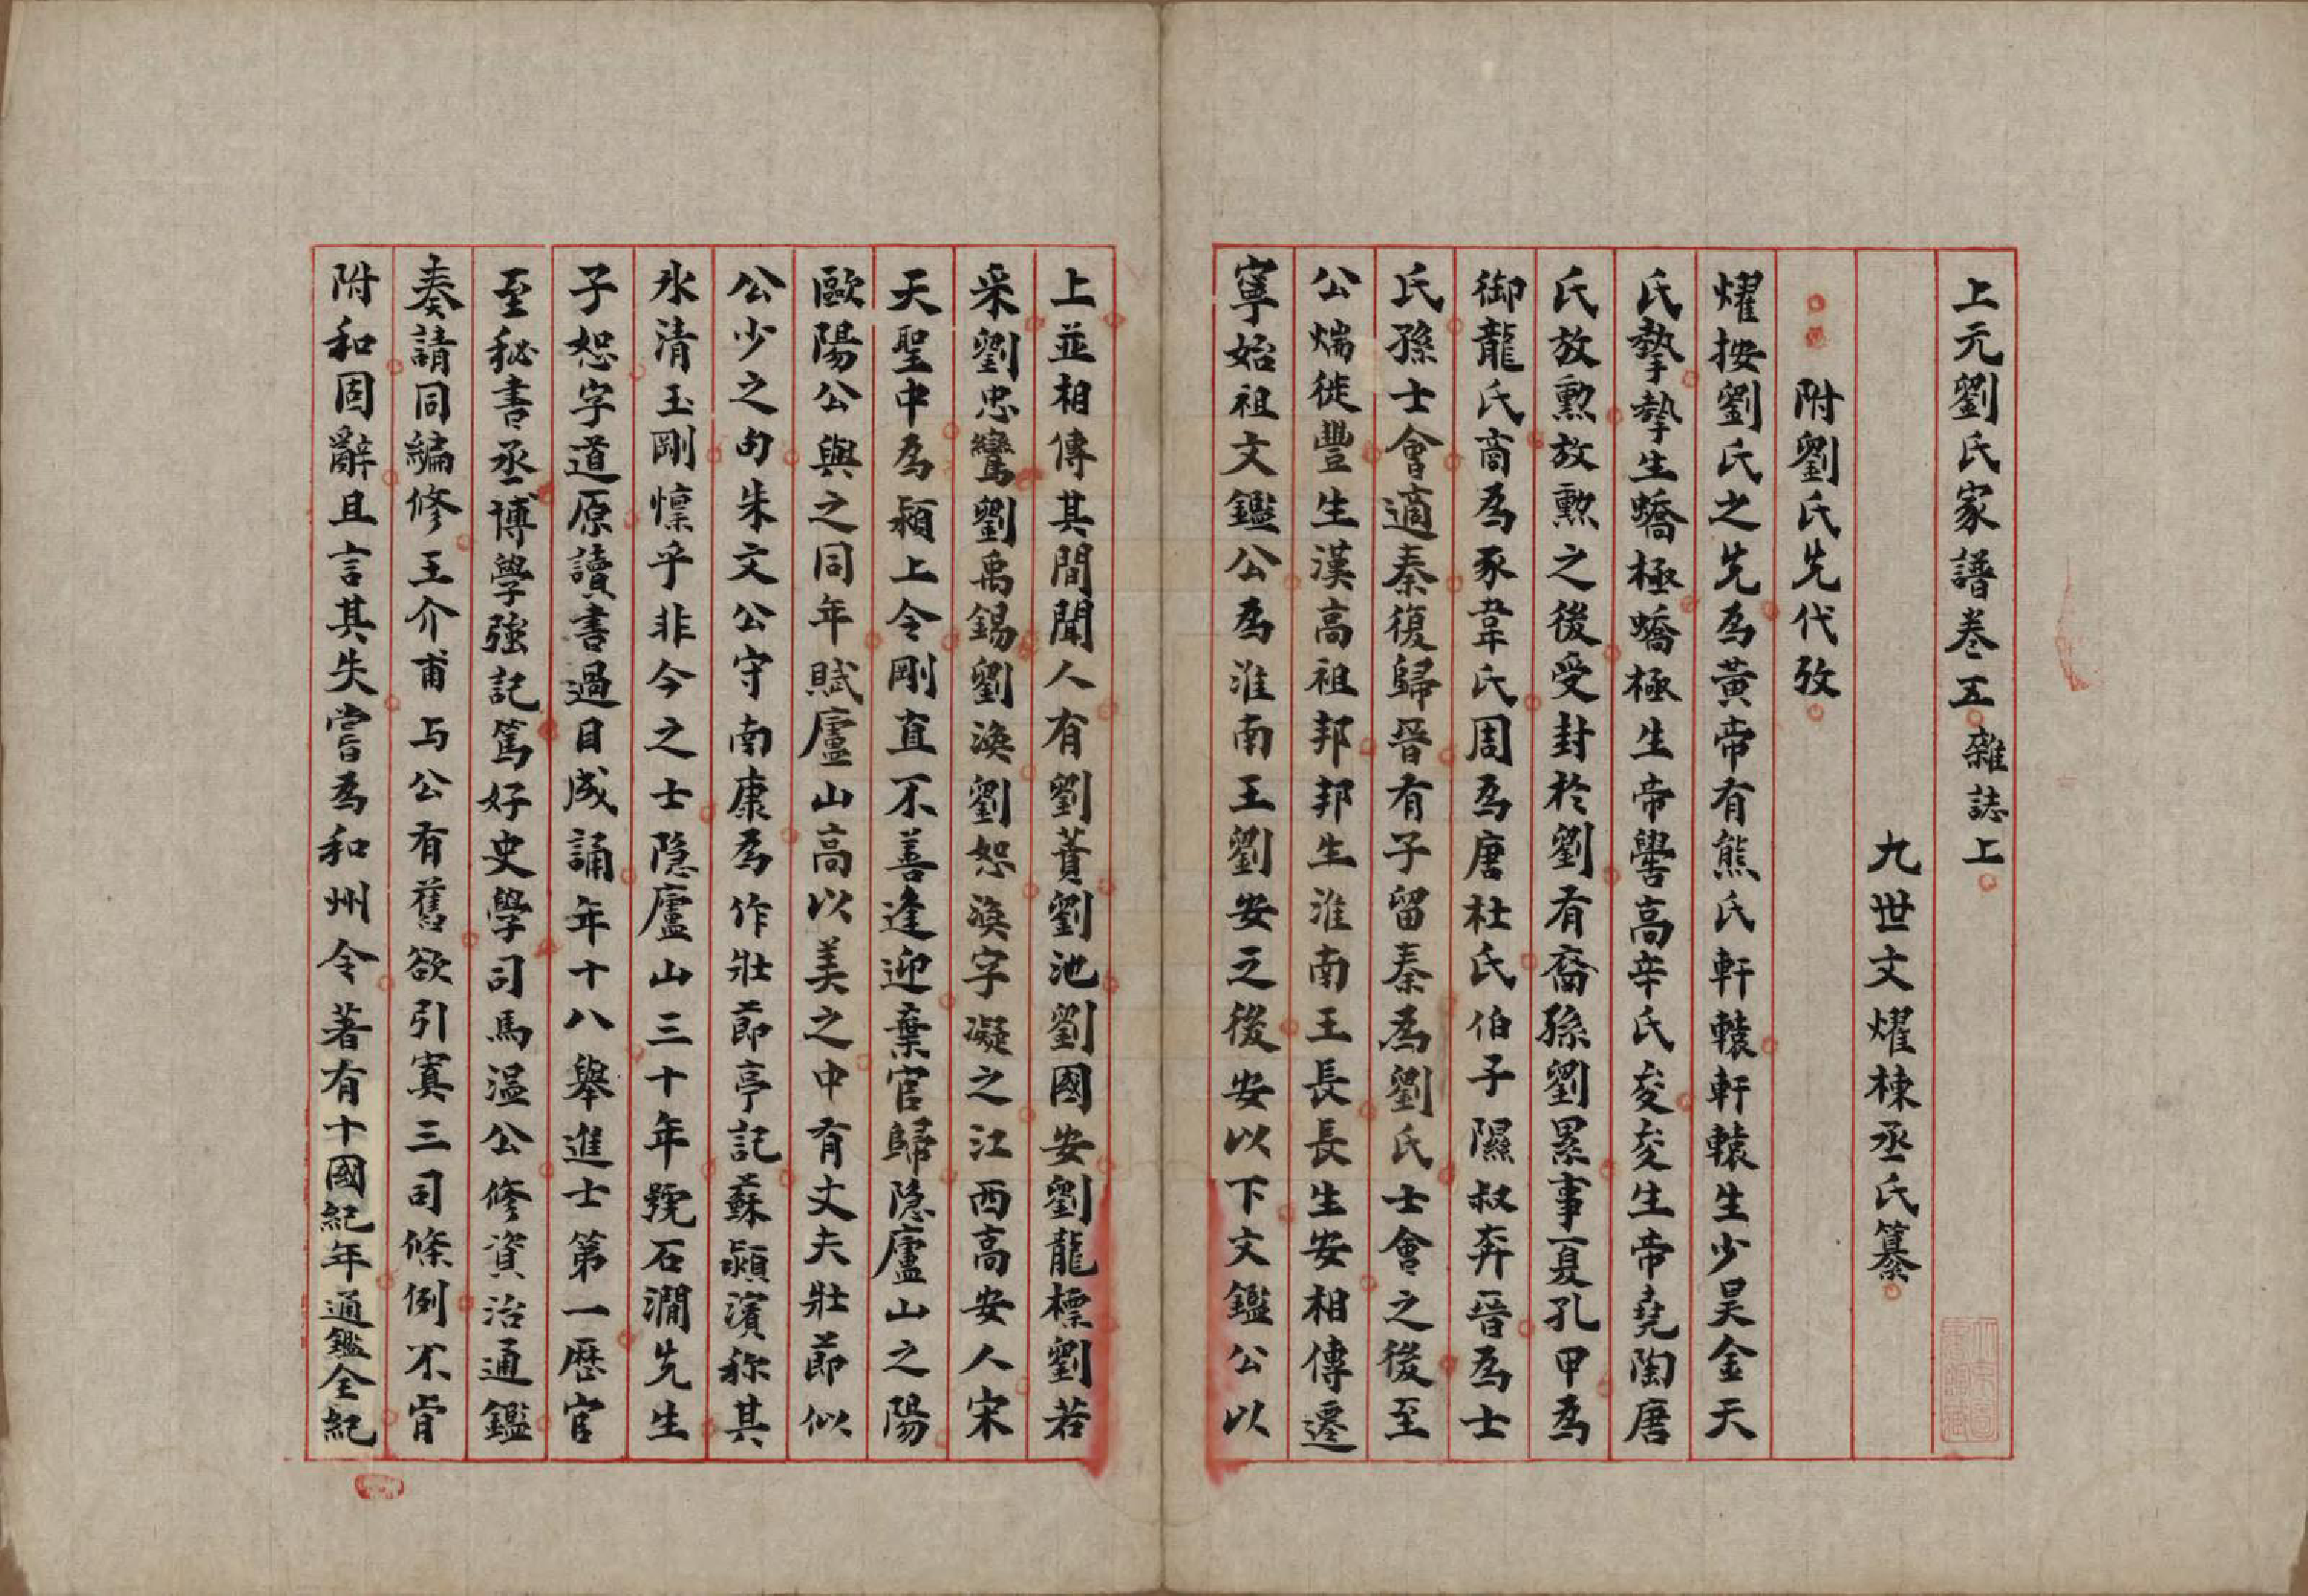 上元劉氏家譜卷五雜誌上
九世文燿棟丞氏纂
附劉氏先代攷
燿按劉氏之先為黃帝有熊氏軒轅軒轅生少昊金天
氏摯摯生蟜極蟜極生帝嚳高辛氏夋夋生帝堯陶唐
氏放勲放勲之後受封於劉有裔孫劉累事夏孔甲為
御龍氏商為豕韋氏周為唐杜氏伯子隰叔奔晉為士
氏孫士會適秦復歸晉有子留秦為劉氏士會之後至
公煓徙豐生漢高祖邦邦生淮南王長長生安相傳遷
寧始祖文鑑公為淮南王劉安之後安以下文鑑公以
上並相傳其間聞人有劉蕡劉沲劉國安劉龍標劉若
采劉忠鸞劉禹錫劉渙劉恕渙字凝之江西高安人宋
天聖中為潁上令剛直不善逢迎棄官歸隐廬山之陽
歐陽公與之同年賦廬山高以美之中有丈夫壯節似
公少之句朱文公守南康為作壯節亭記蘇潁濱称其
氷清玉剛懍乎非今之士隐廬山三十年號石澗先生
子恕字道原讀書過目成誦年十八舉進士第一歷官
至秘書丞博學強記篤好史學司馬温公修資治通鑑
奏請同編修王介甫与公有舊欲引寘三司條例不肯
附和固辭且言其失嘗為和州令著有十國紀年通鑑全紀